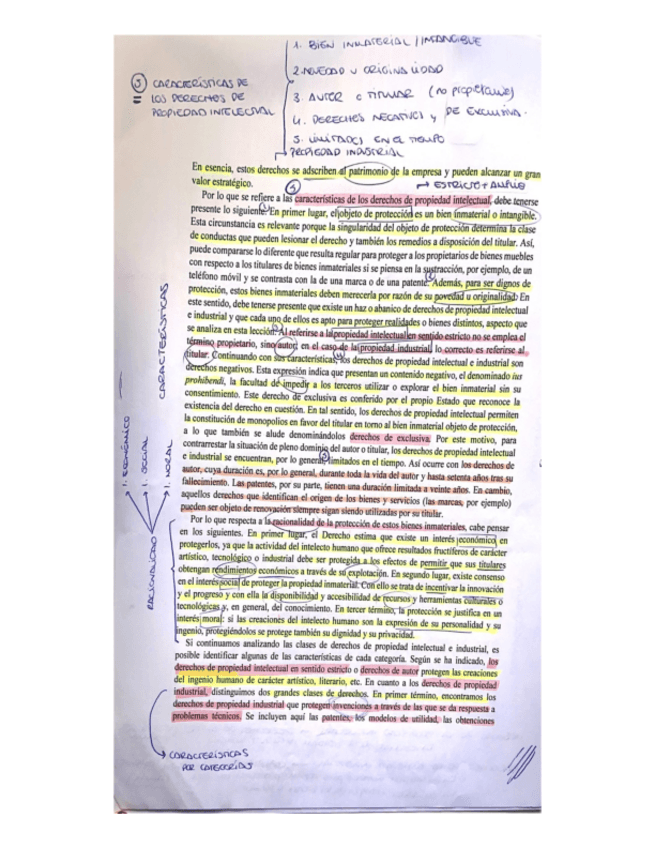 1. BIEN INMATERIAL / INTANGIBLE
2. NOVEDAD U ORIGINALIDAD
3. AUTOR O TITULAR (no propietario)
4. DERECHOS NEGATIVOS y DE EXCLUSIVA.
5. LIMITADOS EN EL TIEMPO
③ CARACTERÍSTICAS DE
LOS DERECHOS DE
PROPIEDAD INTELECTUAL
PROPIEDAD INDUSTRIAL
En esencia, estos derechos se adscriben al patrimonio de la empresa y pueden alcanzar un gran
valor estratégico.
ESTRICTO + AMPLIO
Por lo que se refiere a las características de los derechos de propiedad intelectual, debe tenerse
presente lo siguiente. En primer lugar, el objeto de protección es un bien inmaterial o intangible.
Esta circunstancia es relevante porque la singularidad del objeto de protección determina la clase
de conductas que pueden lesionar el derecho y también los remedios a disposición del titular. Así,
puede compararse lo diferente que resulta regular para proteger a los propietarios de bienes muebles
con respecto a los titulares de bienes inmateriales si se piensa en la sustracción, por ejemplo, de un
teléfono móvil y se contrasta con la de una marca o de una patente. Además, para ser dignos de
protección, estos bienes inmateriales deben merecerla por razón de su novedad u originalidad. En
este sentido, debe tenerse presente que existe un haz o abanico de derechos de propiedad intelectual
e industrial y que cada uno de ellos es apto para proteger realidades o bienes distintos, aspecto que
se analiza en esta lección. Al referirse a la propiedad intelectual en sentido estricto no se emplea el
término propietario, sino autor; en el caso de la propiedad industrial, lo correcto es referirse al
titular. Continuando con sus características, los derechos de propiedad intelectual e industrial son
derechos negativos. Esta expresión indica que presentan un contenido negativo, el denominado ius
prohibendi, la facultad de impedir a los terceros utilizar o explorar el bien inmaterial sin su
consentimiento. Este derecho de exclusiva es conferido por el propio Estado que reconoce la
existencia del derecho en cuestión. En tal sentido, los derechos de propiedad intelectual permiten
la constitución de monopolios en favor del titular en torno al bien inmaterial objeto de protección,
a lo que también se alude denominándolos derechos de exclusiva. Por este motivo, para
contrarrestar la situación de pleno dominio del autor o titular, los derechos de propiedad intelectual
e industrial se encuentran, por lo general, limitados en el tiempo. Así ocurre con los derechos de
autor, cuya duración es, por lo general, durante toda la vida del autor y hasta setenta años tras su
fallecimiento. Las patentes, por su parte, tienen una duración limitada a veinte años. En cambio,
aquellos derechos que identifican el origen de los bienes y servicios (las marcas, por ejemplo)
pueden ser objeto de renovación siempre sigan siendo utilizadas por su titular.
Por lo que respecta a la racionalidad de la protección de estos bienes inmateriales, cabe pensar
en los siguientes. En primer lugar, el Derecho estima que existe un interés económico en
protegerlos, ya que la actividad del intelecto humano que ofrece resultados fructíferos de carácter
artístico, tecnológico o industrial debe ser protegida a los efectos de permitir que sus titulares
obtengan rendimientos económicos a través de su explotación. En segundo lugar, existe consenso
en el interés social de proteger la propiedad inmaterial. Con ello se trata de incentivar la innovación
y el progreso y con ella la disponibilidad y accesibilidad de recursos y herramientas culturales o
tecnológicas y, en general, del conocimiento. En tercer término, la protección se justifica en un
interés moral: si las creaciones del intelecto humano son la expresión de su personalidad y su
ingenio, protegiéndolos se protege también su dignidad y su privacidad.
Si continuamos analizando las clases de derechos de propiedad intelectual e industrial, es
posible identificar algunas de las características de cada categoría. Según se ha indicado, los
derechos de propiedad intelectual en sentido estricto o derechos de autor protegen las creaciones
del ingenio humano de carácter artístico, literario, etc. En cuanto a los derechos de propiedad
industrial, distinguimos dos grandes clases de derechos. En primer término, encontramos los
derechos de propiedad industrial que protegen invenciones a través de las que se da respuesta a
problemas técnicos. Se incluyen aquí las patentes, los modelos de utilidad, las obtenciones
CARACTERÍSTICAS
1. ECONÓMICO
1. SOCIAL
1. MORAL
RACIONALIDAD
CARACTERÍSTICAS
POR CATEGORÍAS